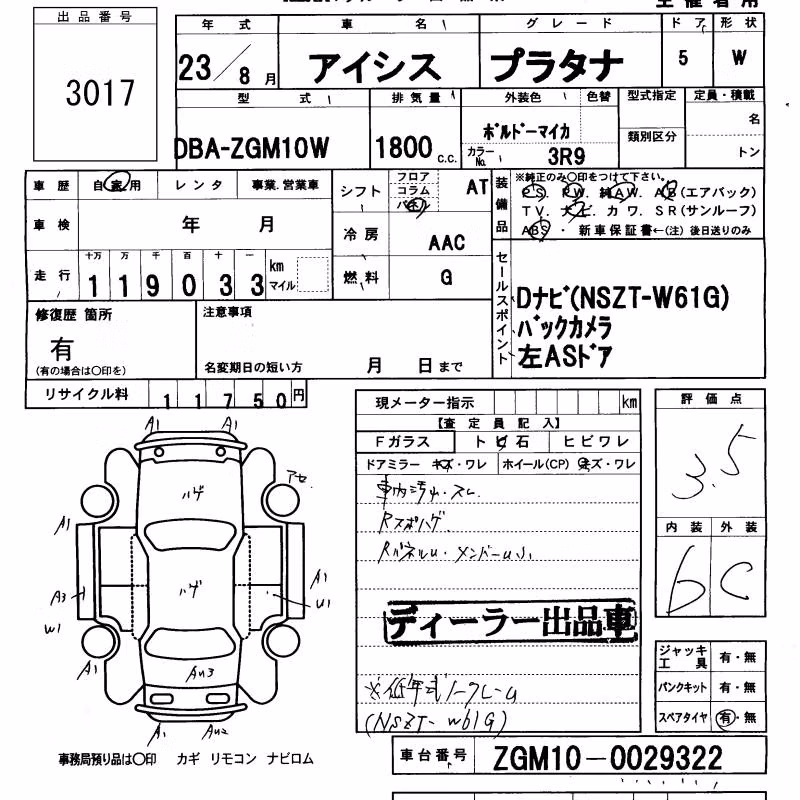 出品番号
3017
年式 車名 グレード ドア 形状
23/8月 アイシス プラタナ 5 W
型式 排気量 外装色 色替 型式指定 定員・積載
DBA-ZGM10W 1800c.c. ボルドーマイカ 類別区分 名
カラーNo. 3R9 トン
車歴 自家用 レンタ 事業.営業車
車検 年 月
走行 十万 万 千 百 十 一
119033 km マイル
シフト フロア コラム パネル AT
冷房 AAC
燃料 G
装備品
※純正のみ〇印をつけて下さい。
PS. PW. 純AW. AB(エアバック)
TV. ナビ. カワ. SR(サンルーフ)
ABS ・ 新車保証書←(注)後日送りのみ
セールスポイント
Dナビ(NSZT-W61G)
バックカメラ
左ASドア
修復歴 箇所
有
(有の場合は〇印を)
注意事項
名変期日の短い方 月 日まで
リサイクル料 11750円
現メーター指示 km
【査定員記入】
Fガラス トビ石 ヒビワレ
ドアミラー キズ・ワレ ホイール(CP) キズ・ワレ
車内汚れ・スレ
Rスポハゲ
RパネルU・メンバーU小
ディーラー出品車
(NSZT-W61G)
評価点
3.5
内装 外装
6 C
ジャッキ工具 有・無
パンクキット 有・無
スペアタイヤ 有・無
A1 A1
ハゲ
アセ
A1
ハゲ
A3
W1
A1
U1
A1
AU3
A1 AU2
事務局預り品は〇印 カギ リモコン ナビロム
車台番号 ZGM10-0029322